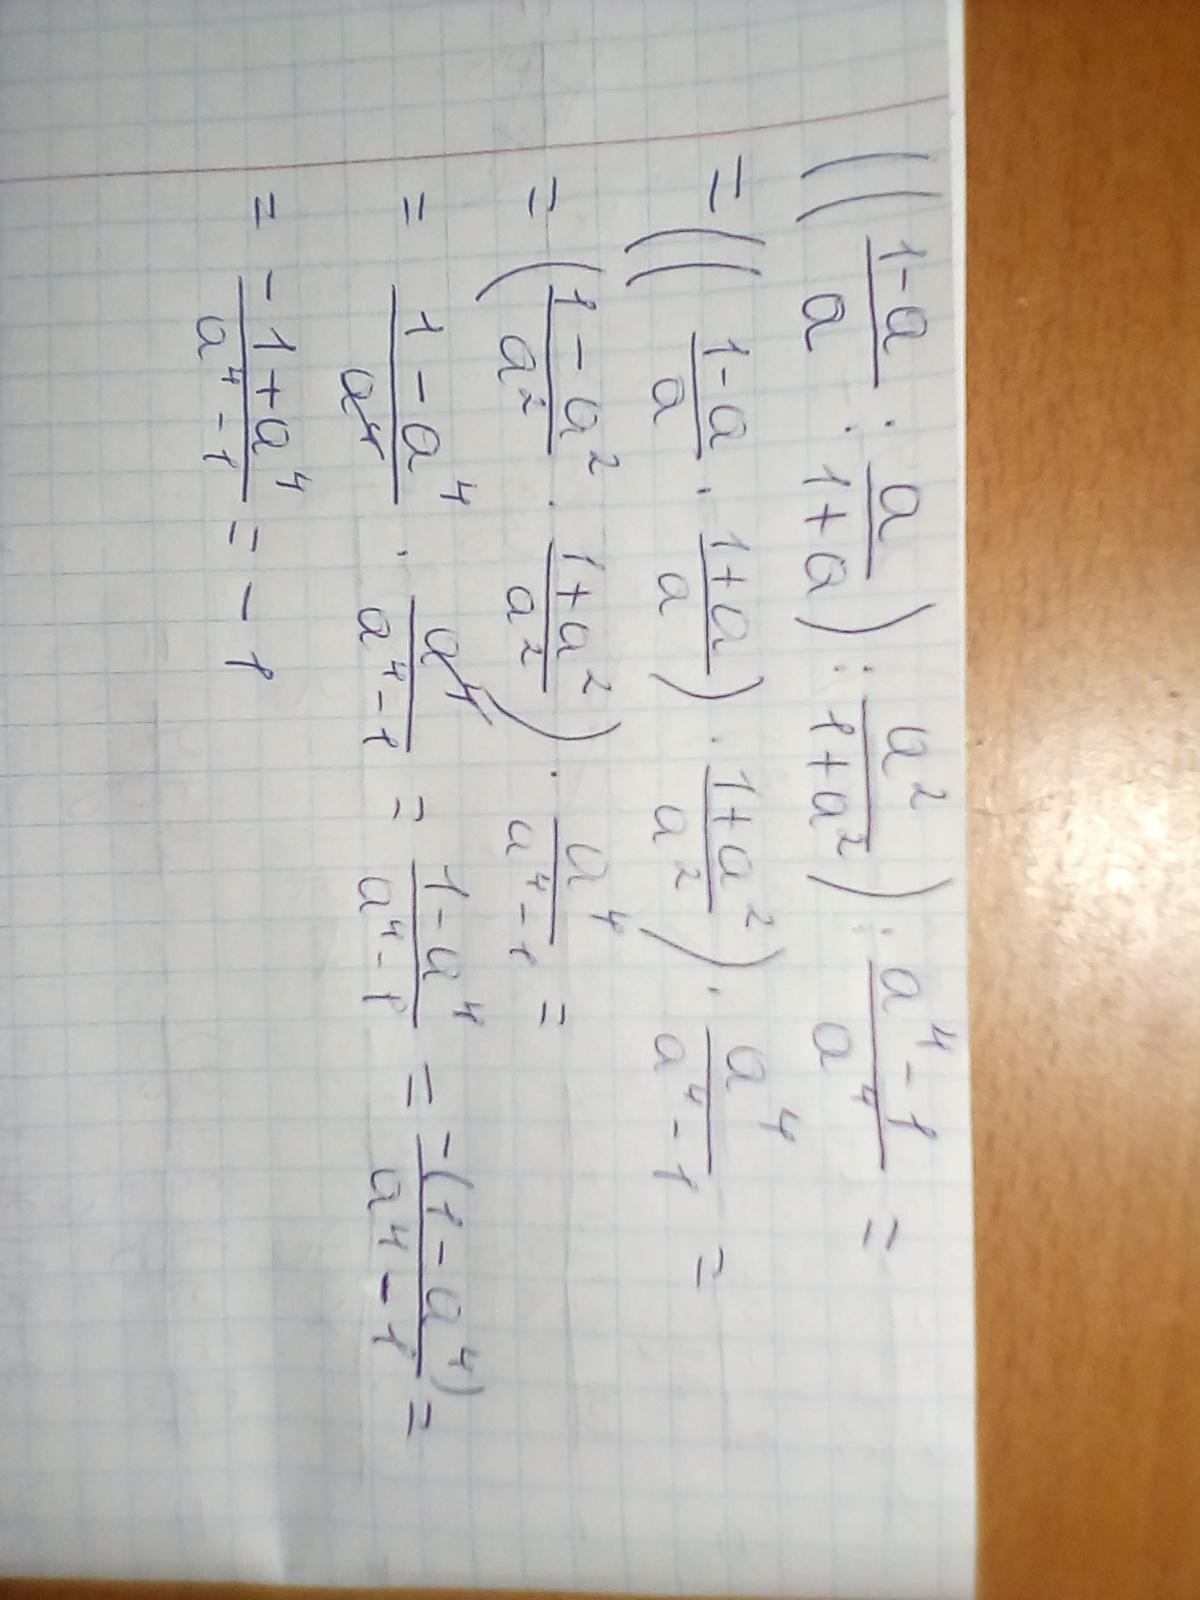 ((1-a/a : a/1+a) : a²/1+a²) : a⁴-1/a⁴ =
= ((1-a/a · 1+a/a) · 1+a²/a²) · a⁴/a⁴-1 =
= (1-a²/a² · 1+a²/a²) · a⁴/a⁴-1 =
= 1-a⁴/a⁴ · a⁴/a⁴-1 = 1-a⁴/a⁴-1 = -(1-a⁴)/a⁴-1 =
= -1+a⁴/a⁴-1 = -1